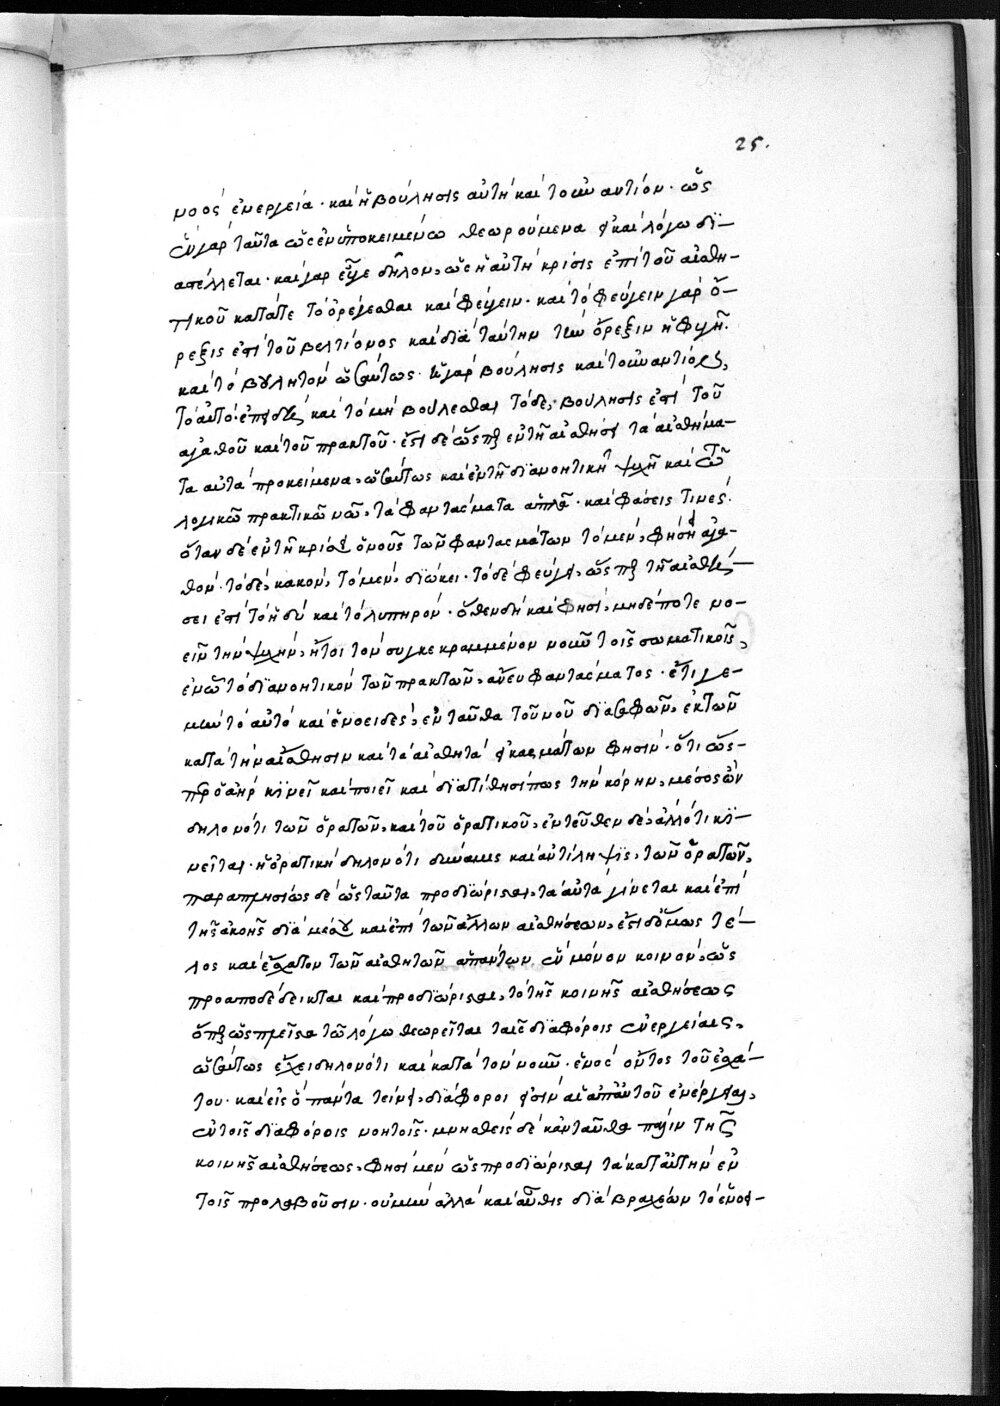 25.
νοὸς ἐνεργεία· καὶ ἡ βούλησις αὐτὴ καὶ τοὐναντίον· ὡς
ἓν γὰρ ταῦτα ὡς ἐν ὑποκειμένῳ θεωρούμενα καὶ λόγῳ δι-
αστέλλεται· καὶ γὰρ δῆλον, ὡς ἡ αὐτὴ κρίσις ἐπὶ τοῦ αἰσθη-
τικοῦ κατά τε τὸ ὀρέγεσθαι καὶ φεύγειν· καὶ τὸ φεύγειν γὰρ ὄ-
ρεξις ἐπὶ τοῦ βελτίονος καὶ διὰ ταύτην τὴν ὄρεξιν ἡ φυγή.
καὶ τὸ βουλητὸν ὡσαύτως· ἡ γὰρ βούλησις καὶ τοὐναντίον,
τὸ αὐτὸ· καὶ τὸ μὴ βούλεσθαι τόδε, βούλησις ἐπὶ τοῦ
ἀγαθοῦ καὶ τοῦ πρακτοῦ· ἔστι δὲ ὥσπερ ἐν τῇ αἰσθήσει τὰ αἰσθήμα-
τα αὐτὰ προκείμενα, ὡσαύτως καὶ ἐν τῇ διανοητικῇ ψυχῇ καὶ τῷ
λογικῷ πρακτικῷ νῷ, τὰ φαντάσματα ἁπλᾶ· καὶ φάσεις τινές.
ὅταν δὲ ἐν τῇ κρίσει ὁ νοῦς τῶν φαντασμάτων τὸ μὲν, φήσῃ ἀγα-
θόν· τὸ δὲ, κακόν, τὸ μὲν, διώκει· τὸ δὲ φεύγει, ὥσπερ τῇ αἰσθή-
σει ἐπὶ τὸ ἡδὺ καὶ τὸ λυπηρόν· ὅθεν δὴ καὶ φησὶ, μηδέποτε νο-
εῖν τὴν ψυχήν, ἤτοι τὸν συγκεκραμμένον νοῦν τοῖς σωματικοῖς,
ἐν ᾧ τὸ διανοητικὸν τῶν πρακτῶν, ἄνευ φαντάσματος· ἔτι γε-
μὴν τὸ αὐτὸ καὶ ἑνοειδὲς, ἐνταῦθα τοῦ νοῦ διασαφῶν, ἐκ τῶν
κατὰ τὴν αἴσθησιν καὶ τὰ αἰσθητὰ φησίν· ὅτι ὥς-
περ ὁ ἀὴρ κινεῖ καὶ ποιεῖ καὶ διατίθησί πως τὴν κόρην, μέσος ὢν
δηλονότι τῶν ὁρατῶν, καὶ τοῦ ὁρατικοῦ, ἐντεῦθεν δὲ, ἄλλό τι κι-
νεῖται· ἡ ὁρατικὴ δηλονότι δύναμις καὶ ἀντίληψις, τῶν ὁρατῶν,
παραπλησίως δὲ ὡς ταῦτα προδιώρισται, τὰ αὐτὰ γίνεται καὶ ἐπὶ
τῆς ἀκοῆς διὰ μέσου καὶ ἐπὶ τῶν ἄλλων αἰσθήσεων, ἔστι δ' ὅμως τέ-
λος καὶ ἔσχατον τῶν αἰσθητῶν ἁπάντων ἓν μόνον κοινόν, ὡς
προαποδέδεικται καὶ προδιώρισται, τὸ τῆς κοινῆς αἰσθήσεως
ὅπερ ὡς τῷ λόγῳ θεωρεῖται ταῖς διαφόροις ἐνεργείαις,
ὡσαύτως ἔχει δηλονότι καὶ κατὰ τὸν νοῦν· ἑνὸς ὄντος τοῦ ἐσχά-
του· καὶ εἰς ὃ πάντα τείνει, διάφοροι εἰσὶν αἱ ἀπ' αὐτοῦ ἐνέργειαι,
ἐν τοῖς διαφόροις νοητοῖς· μνησθεὶς δὲ κἀνταῦθα πάλιν τῆς
κοινῆς αἰσθήσεως, φησὶ μὲν ὡς προδιώρισται τὰ κατ' αὐτὴν ἐν
τοῖς προλαβοῦσιν· οὐ μὴν ἀλλὰ καὶ αὖθις διὰ βραχέων τὸ ἑνοει-